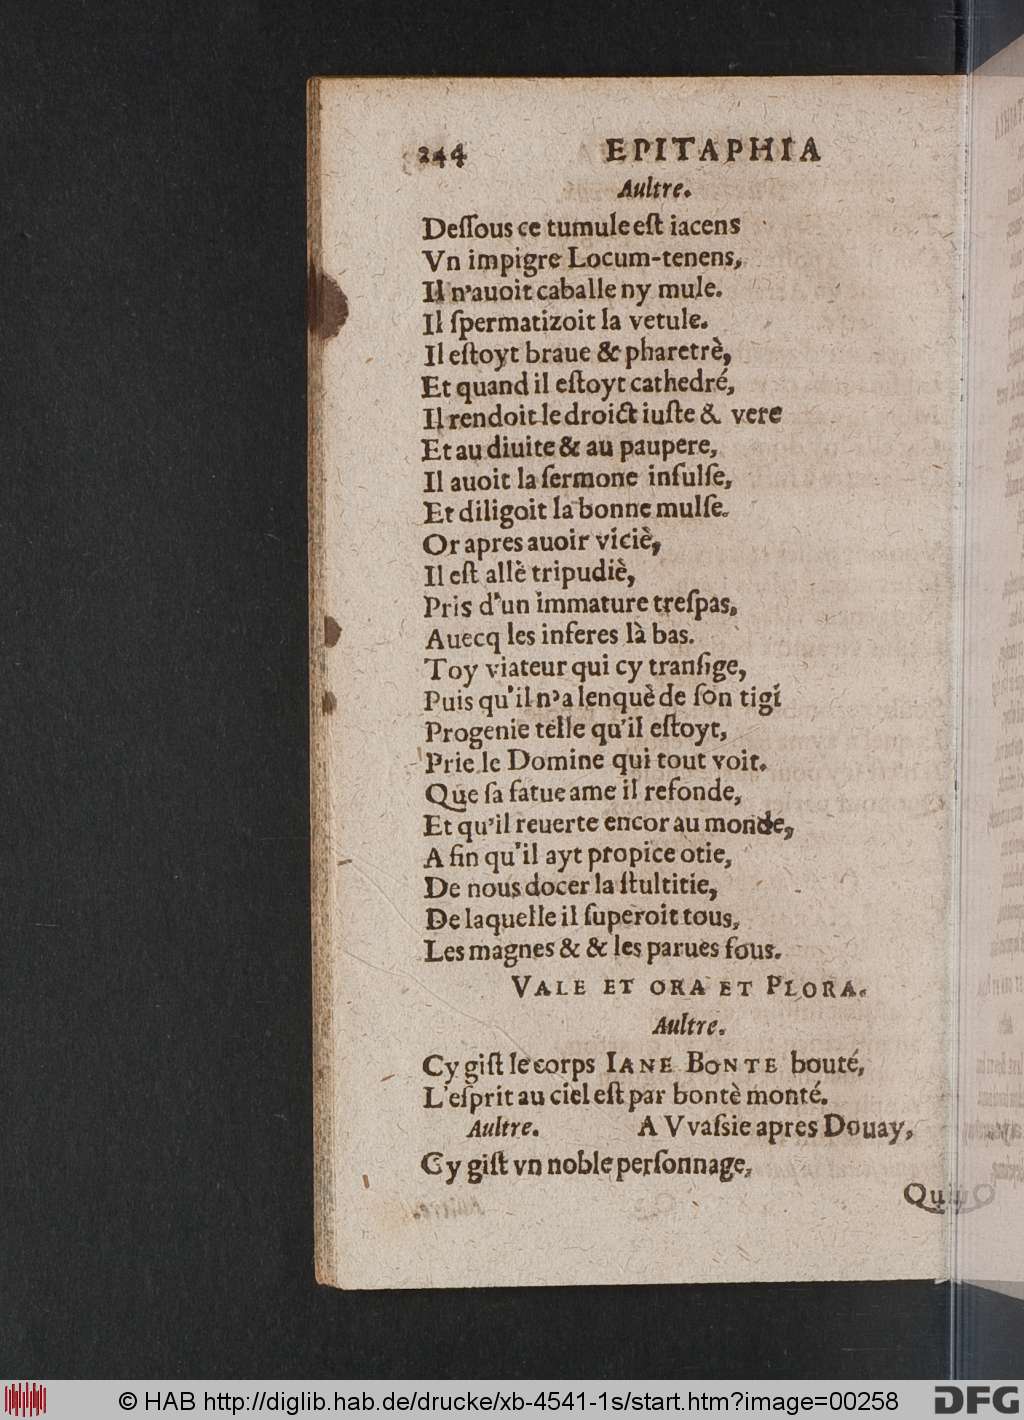 244 EPITAPHIA
Aultre.
Deſſous ce tumule eſt iacens
Vn impigre Locum-tenens,
Il n'auoit caballe ny mule.
Il ſpermatizoit la vetule.
Il eſtoyt braue & pharetrè,
Et quand il eſtoyt cathedré,
Il rendoit le droict iuſte & vere
Et au diuite & au paupere,
Il auoit la ſermone inſulſe,
Et diligoit la bonne mulſe.
Or apres auoir viciè,
Il eſt allè tripudiè,
Pris d'un immature treſpas,
Auecq les inferes là bas.
Toy viateur qui cy tranſige,
Puis qu'il n'a lenquè de ſon tigí
Progenie telle qu'il eſtoyt,
Prie le Domine qui tout voit.
Que ſa fatue ame il refonde,
Et qu'il reuerte encor au monde,
A fin qu'il ayt propice otie,
De nous docer la ſtultitie,
De laquelle il ſuperoit tous,
Les magnes & & les parues fous.
VALE ET ORA ET PLORA.
Aultre.
Cy giſt le corps IANE BONTE bouté,
L'eſprit au ciel eſt par bontè monté.
Aultre. A VvaſSie apres Douay,
Cy giſt vn noble perſonnage,
Qui
© HAB http://diglib.hab.de/drucke/xb-4541-1s/start.htm?image=00258 DFG